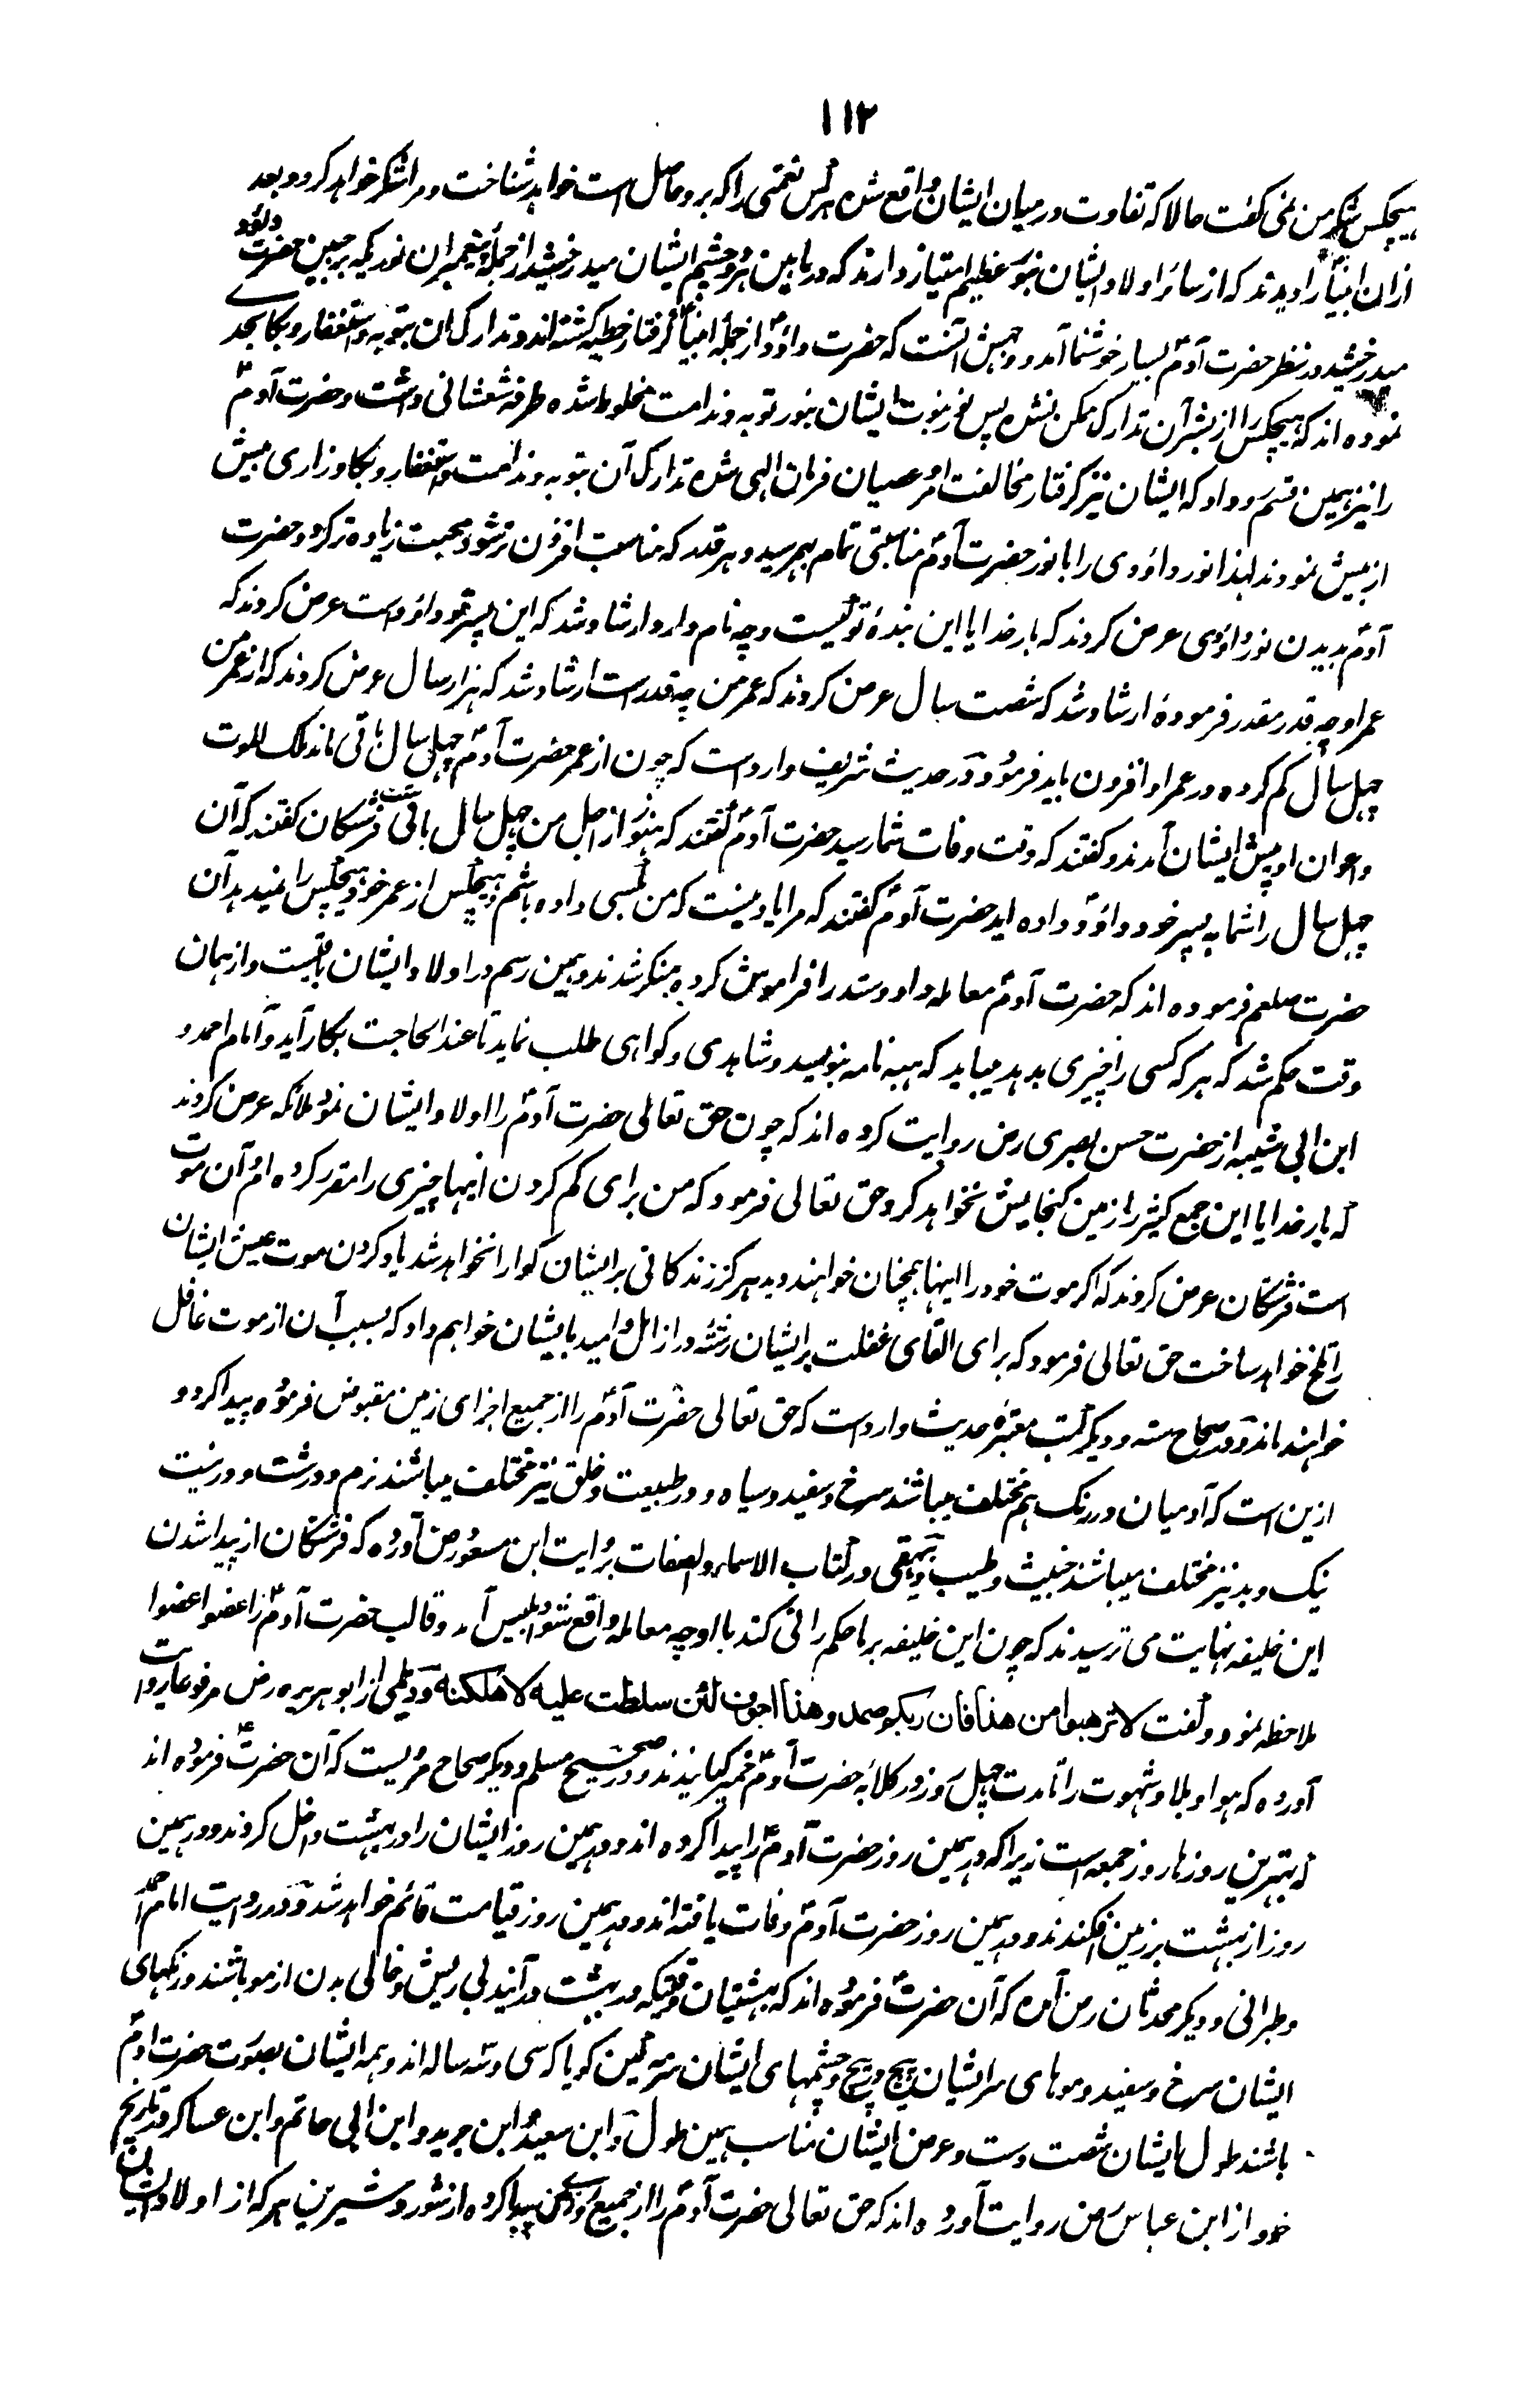 ۱۱۲
هیچکس شکر من نمی گفت حالا که تفاوت درمیان ایشان واقع شده هرکس نعمتی را که برو حاصل است خواهد شناخت و مرا شکر خواهد کرد و بعد
ازان انبیا را دیدند که از سائر اولاد ایشان بنور عظیم امتیاز دارند که در مابین هر دو چشم ایشان میدرخشید از جمله پیغمبران نوریکه بر جبین حضرت داؤد
میدرخشید در نظر حضرت آدمؑ بسیار خوشنما آمد و وجهش آنست که حضرت داؤدؑ از جمله انبیا گرفتار خطیه گشته اند و تدارک ان بتوبه و استغفار و بکا بحدے
نموده اند که هیچکس را از بشر آن تدارک ممکن نشده پس نور نبوت ایشان بنور توبه و ندامت مخلوط شده طرفه شعشانی داشت و حضرت آدمؑ
را نیز همین قسم رو داد که ایشان نیز گرفتار مخالفت امر و عصیان فرمان الهی شده تدارک آن بتوبه و ندامت و استغفار و بکا و زاری بیش
از بیش نمودند لهذا نور داؤدی را با نور حضرت آدمؑ مناسبتی تمام بهم رسید و هر قدر که مناسبت افزون تر شود محبت زیاده تر گردد حضرت
آدمؑ بدیدن نور داؤدی عرض کردند که بار خدایا این بندهٔ تو کیست و چه نام دارد ارشاد شد که این پسر تو داؤد است عرض کردند که
عمر او چه قدر مقدر فرمودهٔ ارشاد شد که شصت سال عرض کردند که عمر من چه قدر است ارشاد شد که هزار سال عرض کردند که از عمر من
چهل سال کم کرده در عمر او افزون باید فرمود و در حدیث شریف وارد است که چون از عمر حضرت آدمؑ چهل سال باقی ماند ملک الموت
و اعوان او پیش ایشان آمدند و گفتند که وقت وفات شما رسید حضرت آدمؑ گفتند که هنوز از اجل من چهل سال باقی ست فرشتگان گفتند که آن
چهل سال را شما به پسر خود داؤد داده اید حضرت آدمؑ گفتند که مرا یاد نیست که من بکسی داده باشم و هیچکس از عمر خود هیچکس را نمیدهد آن
حضرت صلعم فرموده اند که حضرت آدمؑ معامله داد و ستد را فراموش کرده منکر شدند و همین رسم در اولاد ایشان باقیست و ازهمان
وقت حکم شد که هر که کسی را چیزی بدهد میباید که هبه نامه بنویسد و شاهدی و گواهی طلب نماید تا عند الحاجت بکار آید و امام احمد و
ابن ابی شیبه از حضرت حسن بصری رض روایت کرده اند که چون حق تعالی حضرت آدمؑ را اولاد ایشان نمود ملائکه عرض کردند
که بار خدایا این جمع کثیر را زمین گنجایش نخواهد کرد حق تعالی فرمود که من برای کم کردن اینها چیزی را مقرر کرده ام و آن موت
است فرشتگان عرض کردند که اگر موت خود را اینها همچنان خواهند دید هرگز زندگانی بر ایشان گوارا نخواهد شد یاد کردن موت عیش ایشان
را تلخ خواهد ساخت حق تعالی فرمود که برای القای غفلت بر ایشان رشته دراز امل و امید بایشان خواهم داد که بسبب آن از موت غافل
خواهند ماند و در صحاح سته و دیگر کتب معتبره حدیث وارد است که حق تعالی حضرت آدمؑ را از جمیع اجزای زمین مقبوض فرموده پیدا کرد و
ازین است که آدمیان در رنگ هم مختلف میباشند سرخ و سفید و سیاه و در طبیعت و خلق نیز مختلف میباشند نرم و درشت و در نیت
نیک و بد نیز مختلف میباشند خبیث و طیب و بیهقی در کتاب الاسماء والصفات بروایت ابن مسعود رض آورده که فرشتگان از پیدا شدن
این خلیفه نهایت می ترسیدند که چون این خلیفه بر ما حکم رانی کند با او چه معامله واقع شود ابلیس آمد و قالب حضرت آدمؑ را عضوا عضوا
ملاحظه نمود و گفت لا ترهبوا من هذا فان ربکم صمد و هذا اجوف لئن سلطت علیه لاهلکنه و دیلمی از ابو هریره رض مرفوعا روایت
آورده که هوا و بلا و شهوت را تا مدت چهل روز در کلابه حضرت آدمؑ خمیر گیانیدند و در صحیح مسلم و دیگر صحاح مرویست که آن حضرتؐ فرموده اند
که بهترین روزها روز جمعه است زیرا که در همین روز حضرت آدمؑ را پیدا کرده اند و در همین روز ایشان را در بهشت داخل کردند و در همین
روز از بهشت بر زمین افکندند و در همین روز حضرت آدمؑ وفات یافته اند و در همین روز قیامت قائم خواهد شد و در روایت امام احمد
و طبرانی و دیگر محدثان رض آمده که آن حضرتؐ فرموده اند که بهشتیان وقتیکه در بهشت در آیند بی ریش و خالی بدن از مو باشند و رنگهای
ایشان سرخ و سفید و موهای سر ایشان پیچ و پیچ و چشمهای ایشان سرمه گین گویا که سی و سه ساله اند و همه ایشان بصورت حضرت آدمؑ
باشند طول ایشان شصت دست و عرض ایشان مناسب همین طول و ابن سعید و ابن جریر و ابن ابی حاتم و ابن عساکر در تاریخ
خود از ابن عباس رض روایت آورده اند که حق تعالی حضرت آدمؑ را از جمیع روے زمین پیدا کرده از شور و شیرین هر که از اولاد ایشان